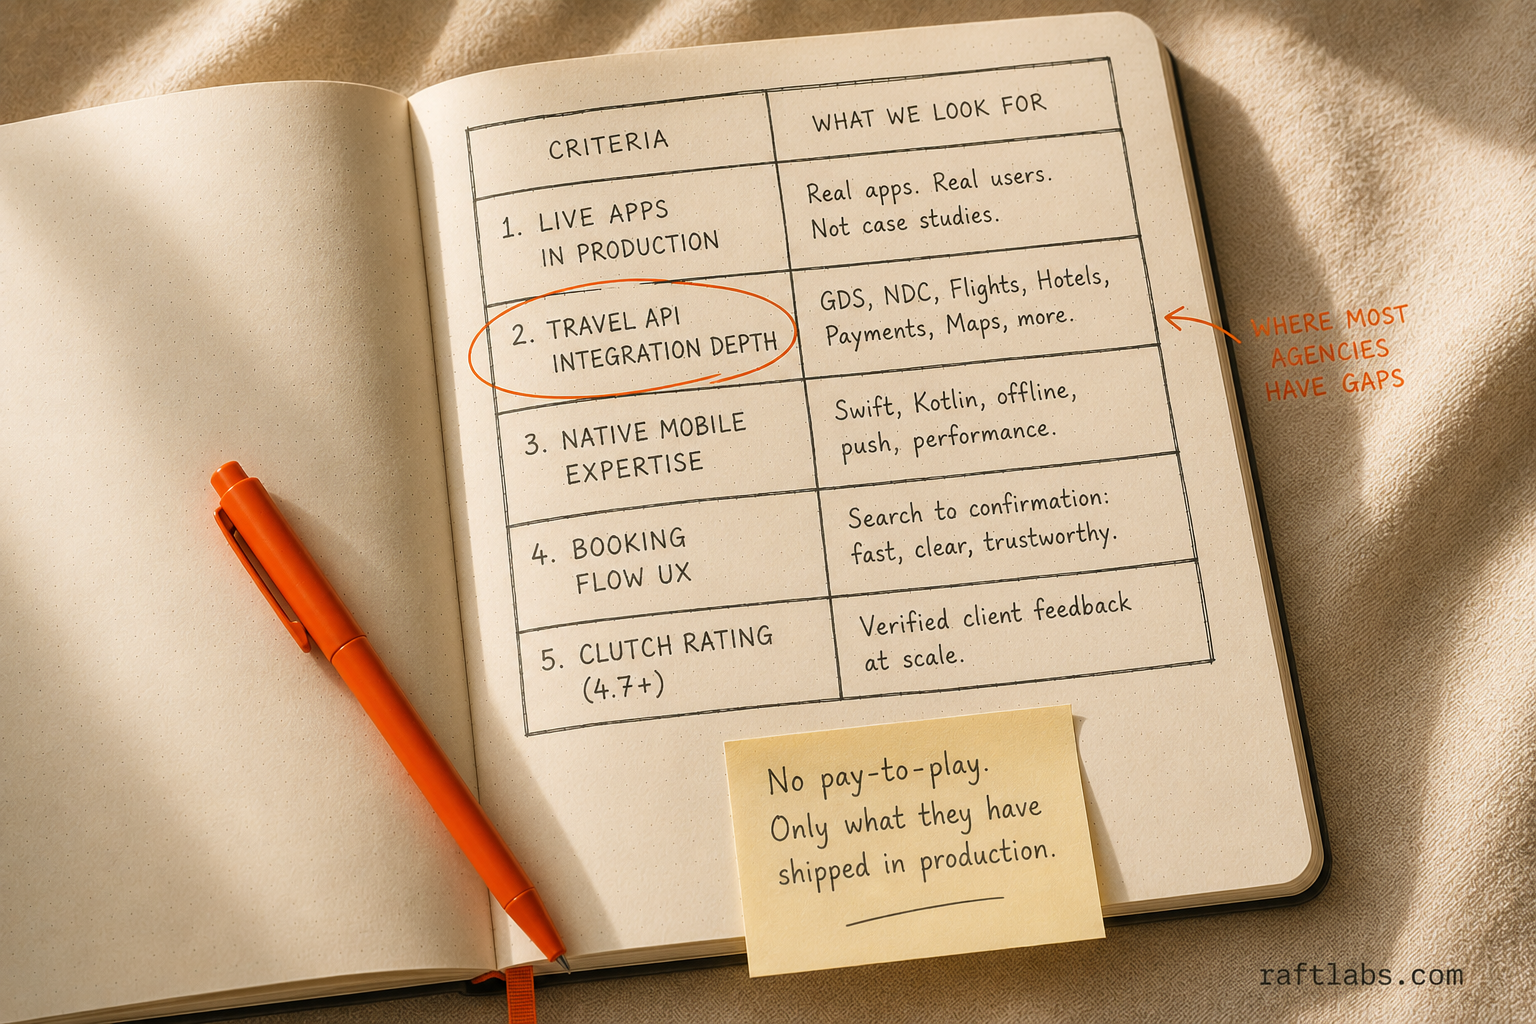 CRITERIA
WHAT WE LOOK FOR
1. LIVE APPS
IN PRODUCTION
Real apps. Real users.
Not case studies.
2. TRAVEL API
INTEGRATION DEPTH
GDS, NDC, Flights, Hotels,
Payments, Maps, more.
WHERE MOST
AGENCIES
HAVE GAPS
3. NATIVE MOBILE
EXPERTISE
Swift, Kotlin, offline,
push, performance.
4. BOOKING
FLOW UX
Search to confirmation:
fast, clear, trustworthy.
5. CLUTCH RATING
(4.7+)
Verified client feedback
at scale.
No pay-to-play.
Only what they have
shipped in production.
raftlabs.com